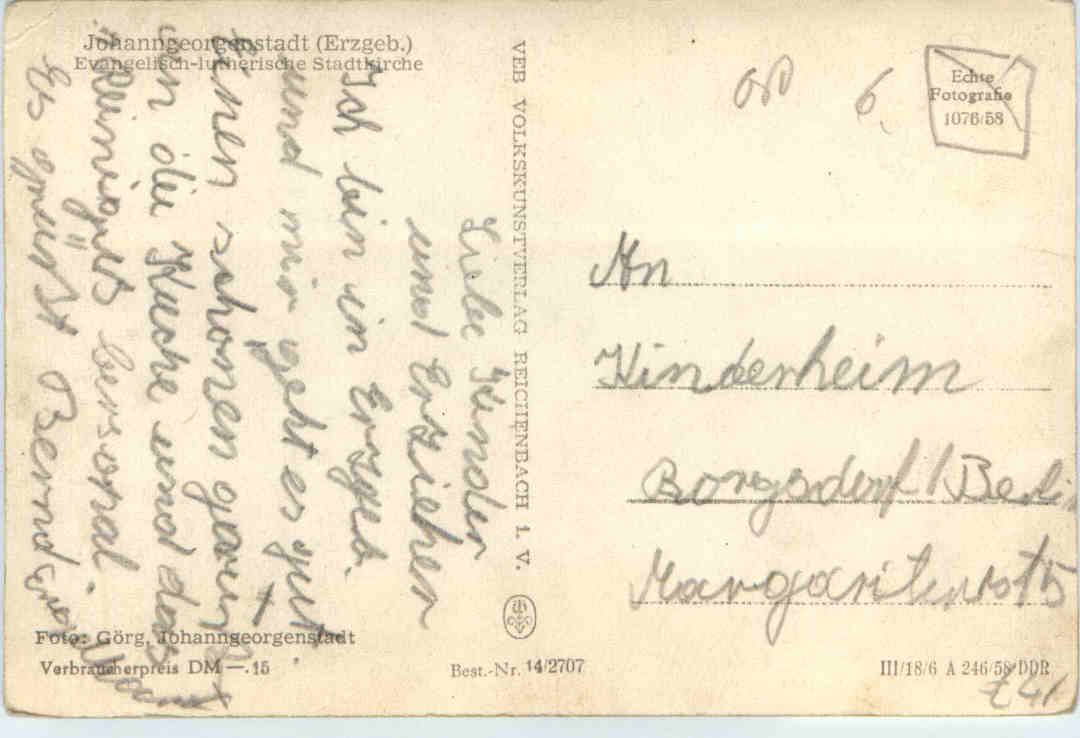 Johanngeorgenstadt (Erzgeb.)
Evangelisch-lutherische Stadtkirche
Liebe Kinder
und Erzieher
Ich bin in Erzgeb.
und mir geht es gut.
einen schönen
an die Küche und das
Es grüßt Bernd
VEB VOLKSKUNSTVERLAG REICHENBACH I. V.
6.
Echte
Fotografie
1076/58
An
Kinderheim
Borgsdorf / Berlin
Margaritenstr 5
Foto: Görg, Johanngeorgenstadt
Verbraucherpreis DM —.15
Best.-Nr. 14/2707
III/18/6 A 246/58 DDR